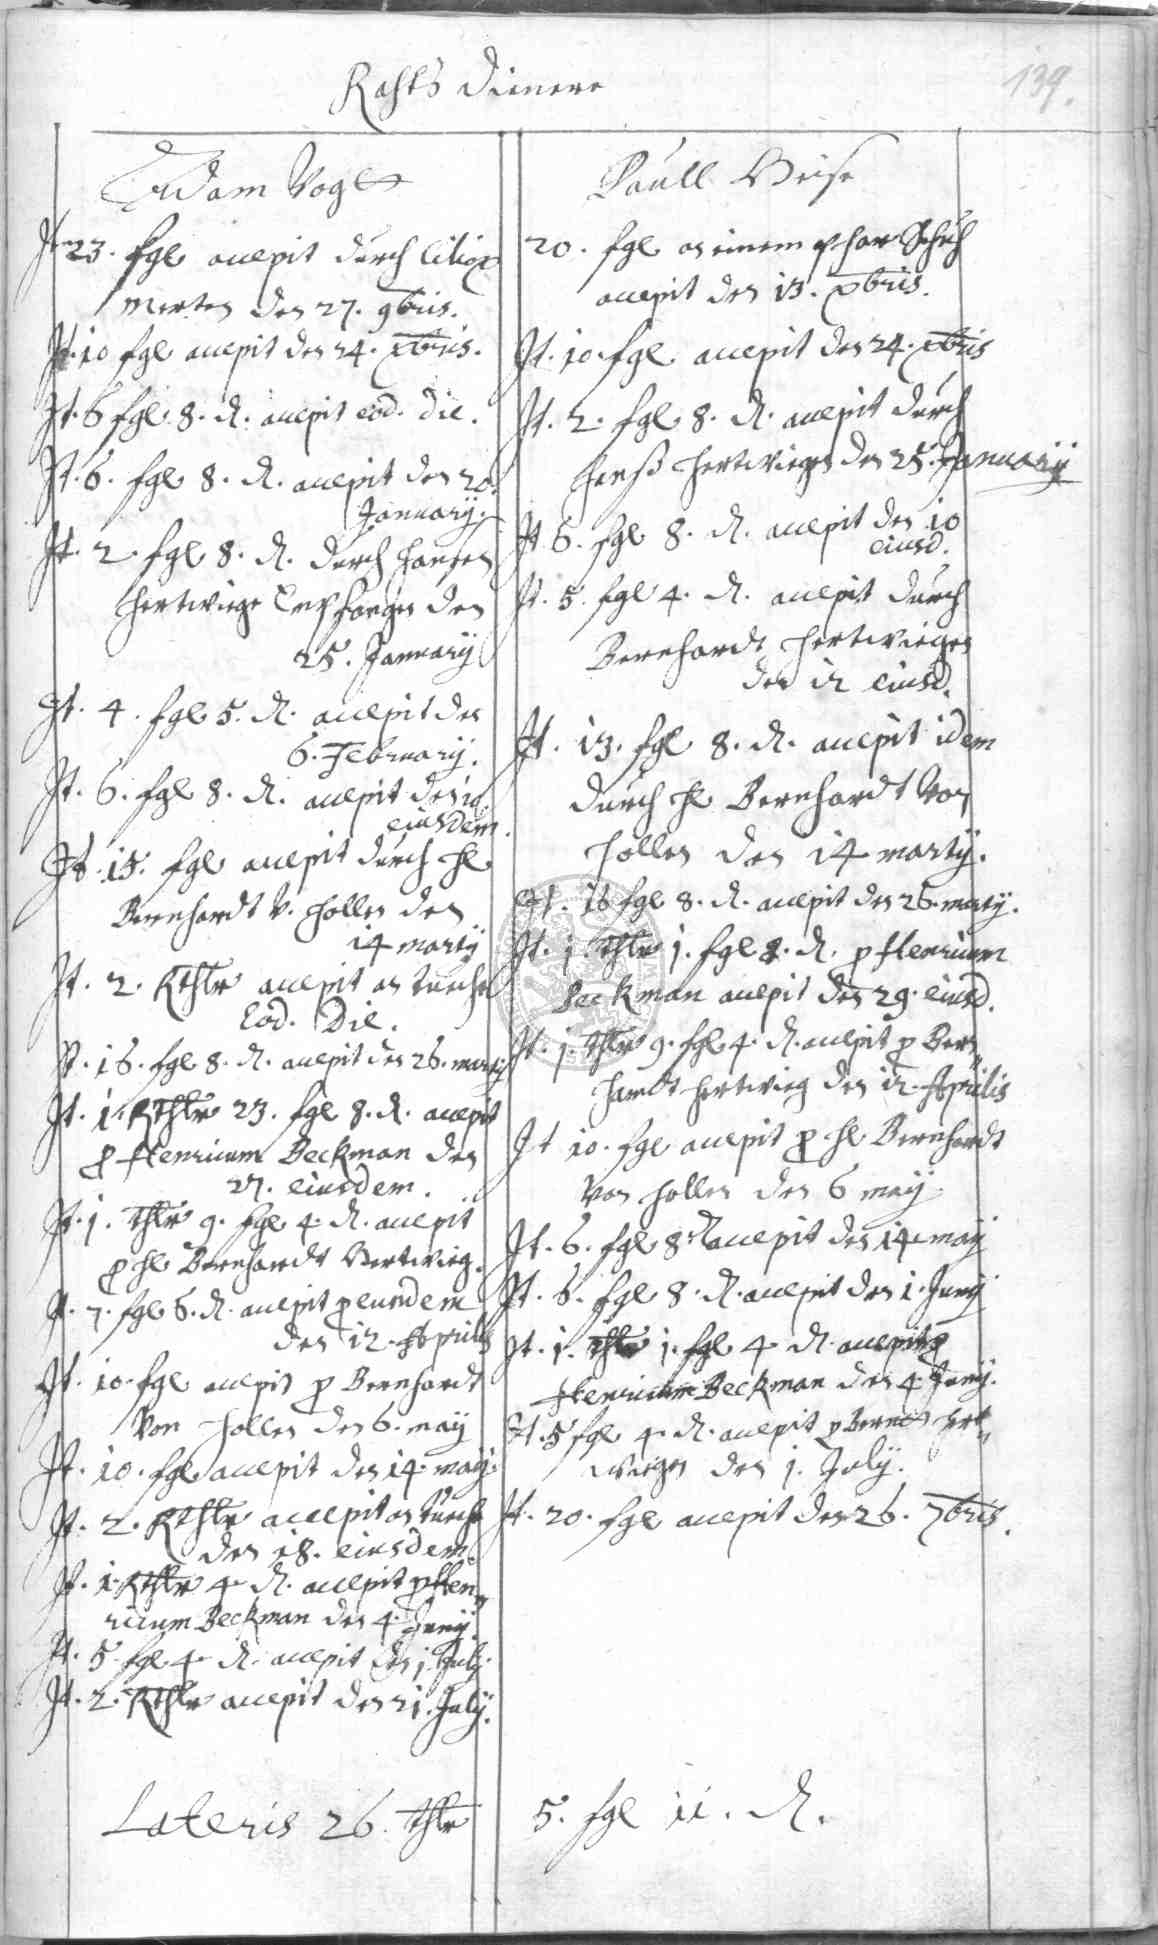 Rahts dienere
139.
Adam Vogt
Jt 23. fgl accepit durch Ciliox
Merten den 27. 9bris.
Jt. 10 fgl accepit den 24. Xbris.
Jt. 6 fgl 8. d. accepit eod. die.
Jt. 6. fgl 8. d. accepit den 20.
January.
Jt. 2 fgl 8. d. durch Hansen
Hertwiege Empfangen den
25. January
Jt. 4. fgl 5. d. accepit den
6. February.
Jt. 6. fgl 8. d. accepit den 10
eiusdem.
Jt. 15. fgl accepit durch H
Bernhardt v. Hollen den
14 marty
Jt. 2. Rthlr accepit an tuche
Eod. Die.
Jt. 16. fgl 8. d. accepit den 26. marty
Jt. 1. Rthlr 23. fgl 8. d. accepit
p Henricum Beckman den
27. eiusdem.
Jt. 1. thlr 9. fgl 4. d. accepit
p H Bernhardt Hertwieg.
Jt. 7. fgl 6. d. accepit p eundem
den 12. Aprilis
Jt. 10. fgl accepit p Bernhardt
Von Hollen den 6. may
Jt. 10. fgl accepit den 14. may.
Jt. 2. Rthlr accepit an tuche
den 18. eiusdem
Jt. 1. Rthlr 4. d. accepit p Hen„
ricum Beckman den 4. Juny.
Jt. 5 fgl 4 d. accepit den 1. July.
Jt. 2. Rthlr accepit den 21. July.
Paull Weise
20. fgl an einem phar Schuh
accepit den 13. Xbris.
Jt. 10. fgl accepit den 24. Xbris
Jt. 2. fgl 8. d. accepit durch
Hanß Hertwiegen den 25. January
Jt 6. fgl 8. d. accepit den 10
eiusd.
Jt. 5. fgl 4. d. accepit durch
Bernhardt Hertwiegen
den 12 eiusd.
Jt. 13. fgl 8. d. accepit idem
durch H Bernhardt Von
Hollen den 14 marty.
Jt. 16 fgl 8. d. accepit den 26. marty.
Jt. 1. thlr 1. fgl 8. d. p Henricum
Beckman accepit den 29. eiusd.
Jt. 1. thlr 9. fgl 4. d. accepit p Bern„
hardt Hertwieg den 12. Aprilis
Jt 10. fgl accepit p H Bernhardt
Von Hollen den 6 may
Jt. 6. fgl 8 d accepit den 14 may
Jt. 6. fgl 8. d. accepit den 1. Juny
Jt. 1. thlr 1. fgl 4 d. accepit p
Henricum Beckman den 4. Juny.
Jt. 5 fgl 4. d. accepit p Bernt Hert„
wiegen den 1. July.
Jt. 20. fgl accepit den 26. 7bris.
Lateris 26. thlr 5. fgl 11. d.